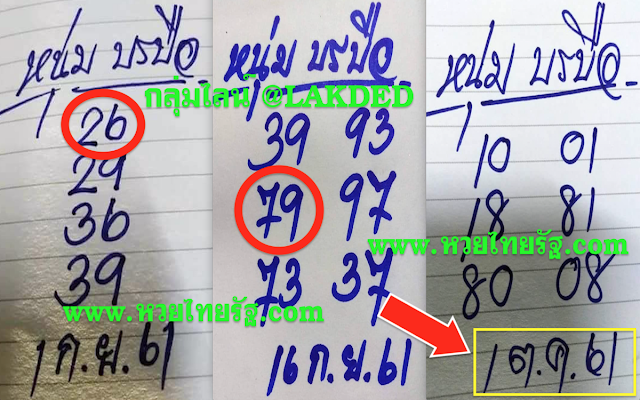 หนุ่ม บรบือ
26
29
36
39
1 ก.ย.61
หนุ่ม บรบือ
39 93
79 97
73 37
16 ก.ย.61
หนุ่ม บรบือ
10 01
18 81
80 08
1 ต.ค.61
กลุ่มไลน์ @LAKDED
www.หวยไทยรัฐ.com
www.หวยไทยรัฐ.com